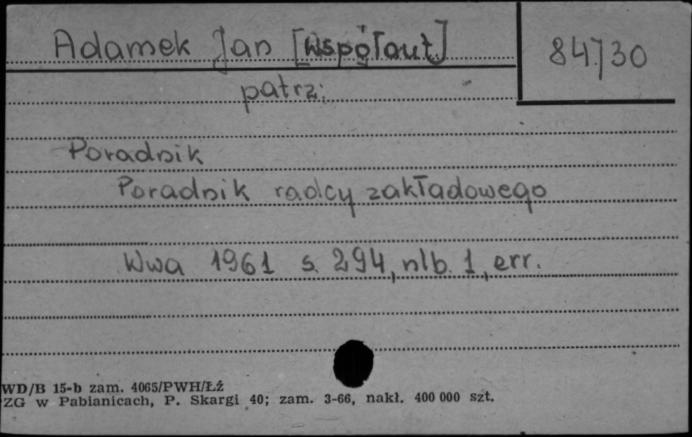 Adamek Jan [współaut.]
84730
patrz:
Poradnik
Poradnik radcy zakładowego
Wwa 1961 s. 294, nlb. 1, err.
WD/B 15-b zam. 4065/PWH/Łź
ZG w Pabianicach, P. Skargi 40; zam. 3-66, nakł. 400 000 szt.